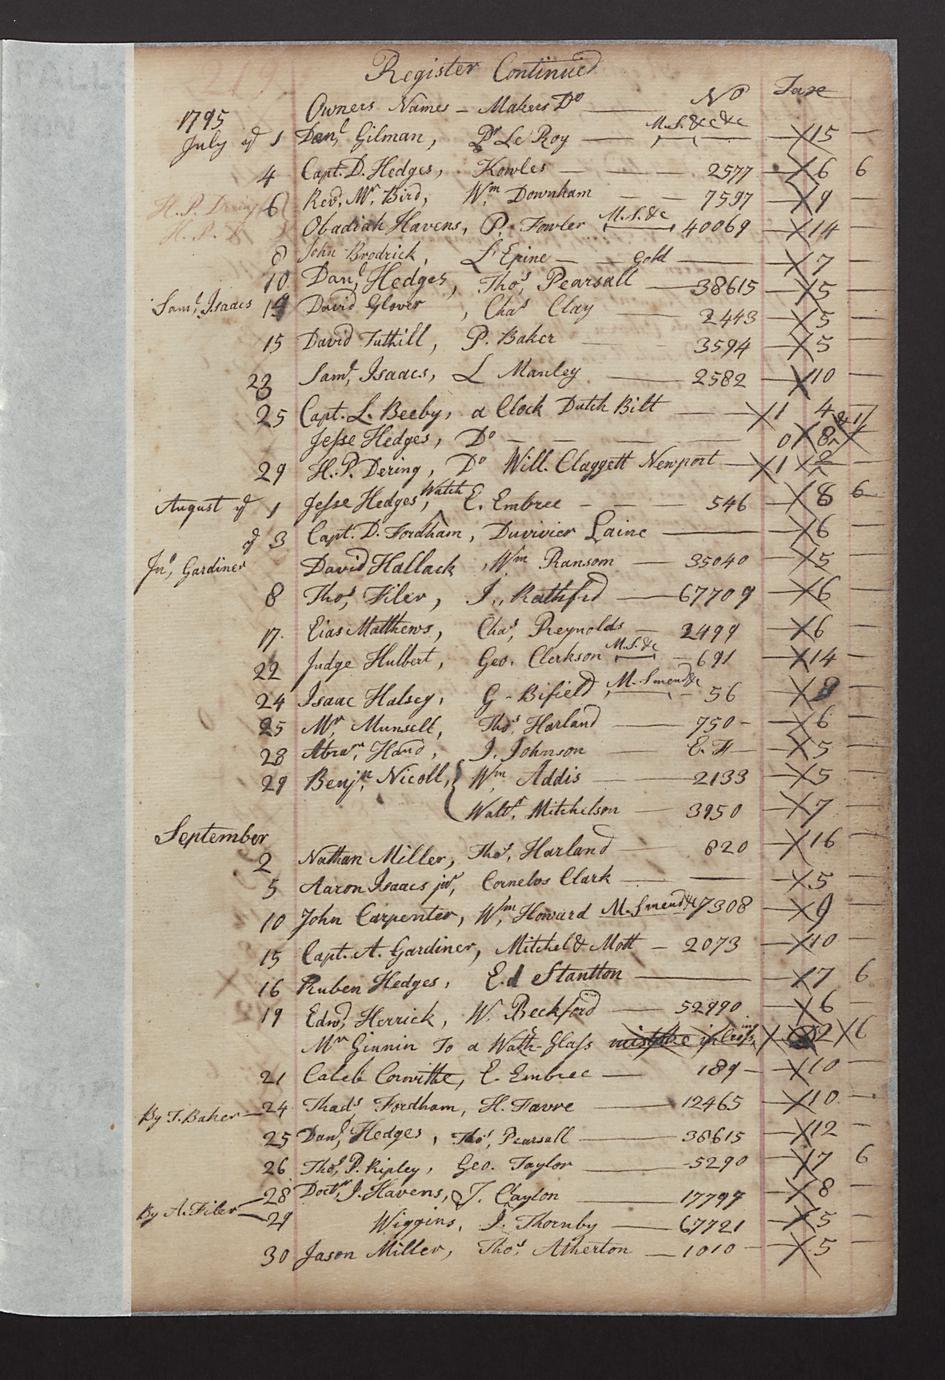 Register Continued
1795 Owners Names - Makers Do No
July ye 1 Danl Gilman, Pr Le Roy M.S. &c &c 15
4 Capt. D. Hedges, Knowles 2577 6 6
6 Revd Mr Bird, Wm Downham 7597 9
Obadiah Havens, P. Fowler M.S. &c 40069 14
8 John Brodrick, L'Epine - Gold 7
10 Danl Hedges, Thos Pearsall 38615 5
Saml Isaacs David Glover, Chas Clay 2443 5
15 David Tuthill, P. Baker 3594 5
23 Saml Isaacs, L Manley 2582 10
25 Capt. L. Beeby, a Clock Dutch Bilt 1 4
Jesse Hedges, Do 0 8
29 H. P. Dering, Do Will. Claggett Newport 1 2
August ye 1 Jesse Hedges, Watch E. Embree 546 8 6
ye 3 Capt. D. Fordham, Duvivier Laine 6
Jno Gardiner David Hallack, Wm Ransom 35040 5
8 Thos Filer, J. Rathford 67709 6
17 Eias Matthews, Chas Reynolds 2499 6
22 Judge Hulbert, Geo. Clerkson M.S. &c 691 14
24 Isaac Halsey, G. Bifield, M. S mend &c 56 8
25 Mr Munsell, Thos Harland 750 6
28 Abram Hand, J. Johnson E. F 5
29 Benjn Nicoll, { Wm Addis 2133 5
Waltr Mitchelson 3950 7
September
2 Nathan Miller, Thos Harland 820 16
5 Aaron Isaacs jur, Cornelos Clark 5
10 John Carpenter, Wm Howard M. S mend &c 7308 9
15 Capt. A. Gardiner, Mitchel & Mott 2073 10
16 Ruben Hedges, E.d Stantton 7 6
19 Edwd Herrick, W. Beckford 52990 6
Mrs Ginnin To a Wath Glass mistake 2 6
21 Caleb Corwithe, E. Embree 189 10
By T. Baker 24 Thads Fordham, H. Favre 12465 10
25 Danl Hedges, Thos Pearsall 38615 12
26 Thos P. Ripley, Geo. Taylor 5290 17 6
28 Doctr J. Havens, J. Caylon 17797 8
By A. Filer 29 Wiggins, J. Thornby 67721 5
30 Jason Miller, Thos Atherton 1010 5